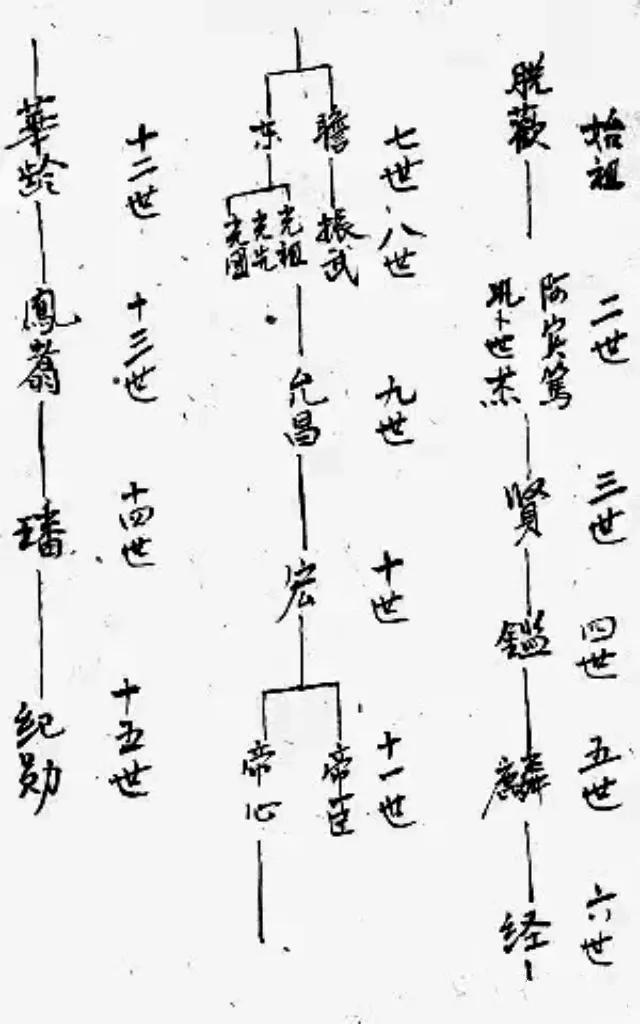 始祖
脱歡
二世
阿賓篤
巩卜世杰
三世
賢
四世
鑑
五世
麟
六世
経
七世
瞻
东
八世
振武
光祖
光先
光国
九世
允昌
十世
宏
十一世
帝臣
帝心
十二世
華龄
十三世
鳳翥
十四世
璠
十五世
纪勋